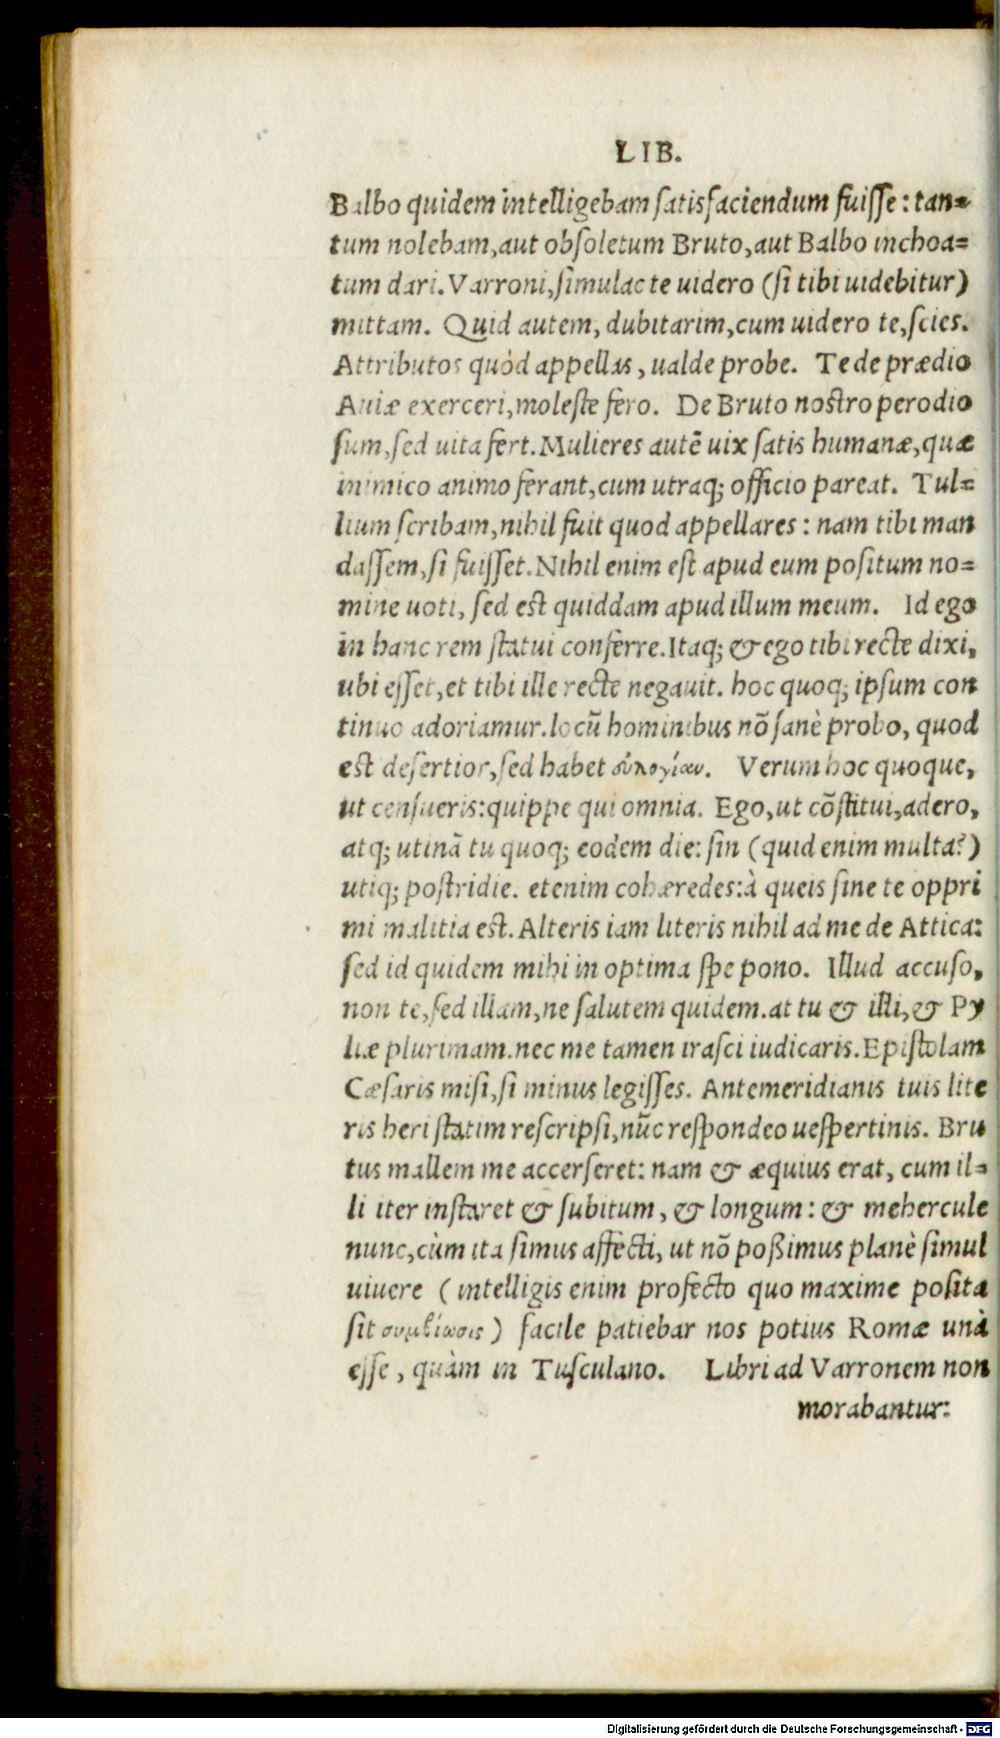 LIB.
Balbo quidem intelligebam ſatisfaciendum fuiſſe: tan=
tum nolebam, aut obſoletum Bruto, aut Balbo inchoa=
tum dari. Varroni, ſimulac te uidero (ſi tibi uidebitur)
mittam. Quid autem, dubitarim, cum uidero te, ſcies.
Attributos quòd appellas, ualde probe. Te de prædio
Auiæ exerceri, moleſte fero. De Bruto noſtro perodio
ſum, ſed uita fert. Mulieres autē uix ſatis humanæ, quæ
inimico animo ferant, cum utraq; officio pareat. Tul=
lium ſcribam, nihil fuit quod appellares: nam tibi man
daſſem, ſi fuiſſet. Nihil enim eſt apud eum poſitum no=
mine uoti, ſed eſt quiddam apud illum meum. Id ego
in hanc rem ſtatui conferre. Itaq; & ego tibi recte dixi,
ubi eſſet, et tibi ille recte negauit. hoc quoq; ipſum con
tinuo adoriamur. locū hominibus nō ſanè probo, quod
eſt deſertior, ſed habet εὐλογίαν. Verum hoc quoque,
ut cenſueris: quippe qui omnia. Ego, ut cōſtitui, adero,
atq; utinā tu quoq; eodem die: ſin (quid enim multa?)
utiq; poſtridie. etenim cohæredes: à queis ſine te oppri
mi malitia eſt. Alteris iam literis nihil ad me de Attica:
ſed id quidem mihi in optima ſpe pono. Illud accuſo,
non te, ſed illam, ne ſalutem quidem. at tu & illi, & Py
liæ plurimam. nec me tamen iraſci iudicaris. Epiſtolam
Cæſaris miſi, ſi minus legiſſes. Antemeridianis tuis lite
ris heri ſtatim reſcripſi, nūc reſpondeo ueſpertinis. Bru
tus mallem me accerſeret: nam & æquius erat, cum il=
li iter inſtaret & ſubitum, & longum: & mehercule
nunc, cùm ita ſimus affecti, ut nō poßimus planè ſimul
uiuere (intelligis enim profecto quo maxime poſita
ſit συμβίωσις) facile patiebar nos potius Romæ unà
eſſe, quàm in Tuſculano. Libri ad Varronem non
morabantur:
Digitalisierung gefördert durch die Deutsche Forschungsgemeinschaft - DFG